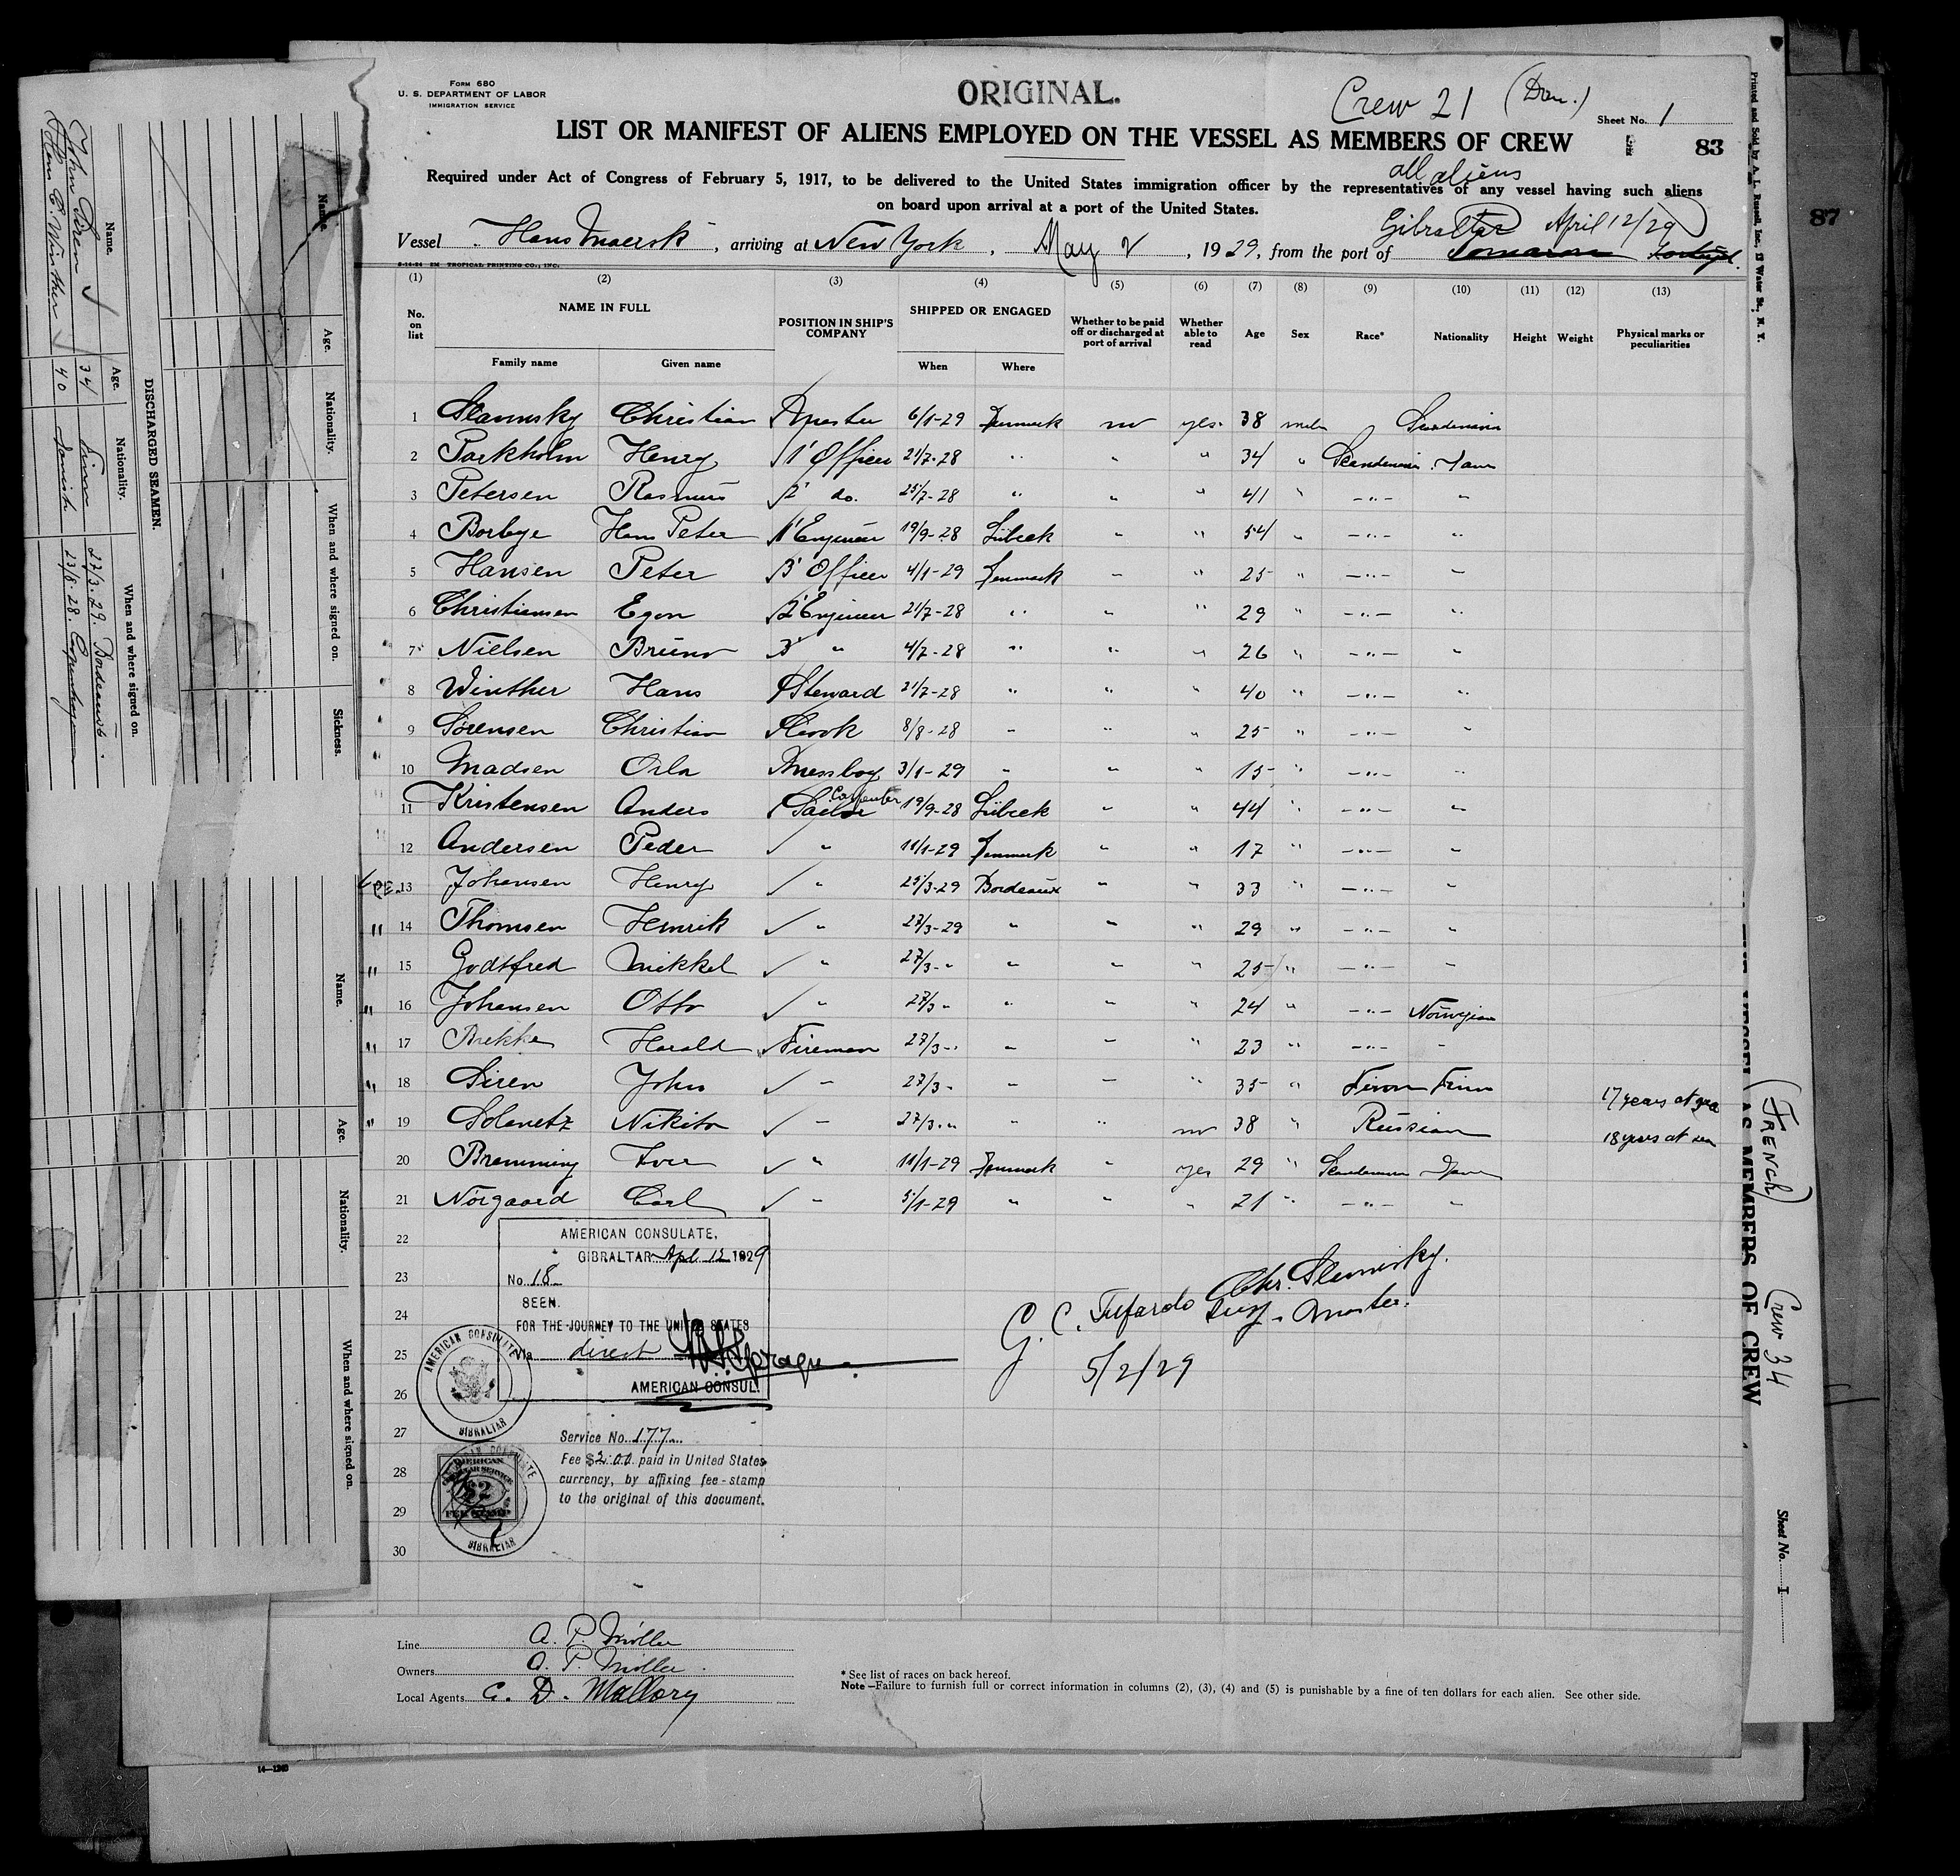 FORM 680
U. S. DEPARTMENT OF LABOR
IMMIGRATION SERVICE
ORIGINAL.
Crew 21 (Dan.)
Sheet No. 1
LIST OR MANIFEST OF ALIENS EMPLOYED ON THE VESSEL AS MEMBERS OF CREW
83
all aliens
Required under Act of Congress of February 5, 1917, to be delivered to the United States immigration officer by the representatives of any vessel having such aliens
on board upon arrival at a port of the United States.
Gibraltar April 12/29
Vessel Hans Maersk, arriving at New York, May 2, 1929, from the port of
8-14-24 2M TROPICAL PRINTING CO., INC.
(1) (2) (3) (4) (5) (6) (7) (8) (9) (10) (11) (12) (13)
No. on list
NAME IN FULL
Family name Given name
POSITION IN SHIP'S COMPANY
SHIPPED OR ENGAGED
When Where
Whether to be paid off or discharged at port of arrival
Whether able to read
Age Sex Race* Nationality Height Weight
Physical marks or peculiarities
1 Christian Master 6/1-29 Denmark no yes 38 male
2 Henry 1' Officer 21/7-28 " " " 34 " Scandinavia Dane
3 Petersen Rasmus 2' do. 25/7-28 " " " 41 " -"- "
4 Borbye Hans Peter 1' Engineer 19/9-28 Lübeck " " 54 " -"- "
5 Hansen Peter 3' Officer 4/1-29 Denmark " " 25 " -"- "
6 Christiansen Egon 2' Engineer 21/7-28 " " " 29 " -"- "
7 Nielsen Bruno 3' " 4/7-28 " " " 26 " -"- "
8 Winther Hans Steward 21/7-28 " " " 40 " -"- "
9 Sørensen Christian Cook 8/8-28 " " " 25 " -"- "
10 Madsen Orla Messboy 3/1-29 " " " 15 " -"- "
11 Kristensen Anders Sailor Carpenter 19/9-28 Lübeck " " 44 " -"- "
12 Andersen Peder " 11/1-29 Denmark " " 17 " -"- "
13 Johansen Henry " 25/3-29 Bordeaux " " 33 " -"- "
" 14 Thomsen Henrik " 27/3-29 " " " 29 " -"- "
" 15 Godtfred Mikkel " 27/3-" " " " 25 " -"- "
" 16 Johansen Otto " 27/3 " " " " 24 " -"- Norwegian
" 17 Brekke Harald Fireman 27/3-" " " " 23 " -"- "
" 18 Siren John " 27/3- " " " 35 " Finn 17 years at sea
" 19 Solonetz Nikita " 27/3-" " " no 38 " Russian 18 years at sea
20 Bremming Iver " 11/1-29 Denmark " yes 29 " Scandinavian Dane
21 Nørgaard Carl " 5/1-29 " " " 21 " -"- "
22
23
24
25
26
27
28
29
30
AMERICAN CONSULATE,
GIBRALTAR Apl. 12 1929
No. 18
SEEN.
FOR THE JOURNEY TO THE UNITED STATES
Via direct
Sprague
AMERICAN CONSUL.
AMERICAN CONSULATE
GIBRALTAR
Service No. 177
Fee $2.00 paid in United States
currency, by affixing fee-stamp
to the original of this document.
AMERICAN
$2
GIBRALTAR
master.
5/2/29
Line A. P. Möller
Owners A. P. Möller
Local Agents C. D. Mallory
* See list of races on back hereof.
Note—Failure to furnish full or correct information in columns (2), (3), (4) and (5) is punishable by a fine of ten dollars for each alien. See other side.
DISCHARGED SEAMEN.
Name. Age. Nationality. When and where signed on.
John Siren 34 Finn 27/3.29. Bordeaux
Hans C. Winther 40 Danish 23/8.28. Copenhagen
Name Age. Nationality. When and where signed on. Sickness.
Name. Age. Nationality. When and where signed on.
Printed and Sold by A. L. Russell, Inc., 12 Water St., N. Y.
87
AS MEMBERS OF CREW
(FRENCH)
Crew 34
Sheet No. I
14—1240